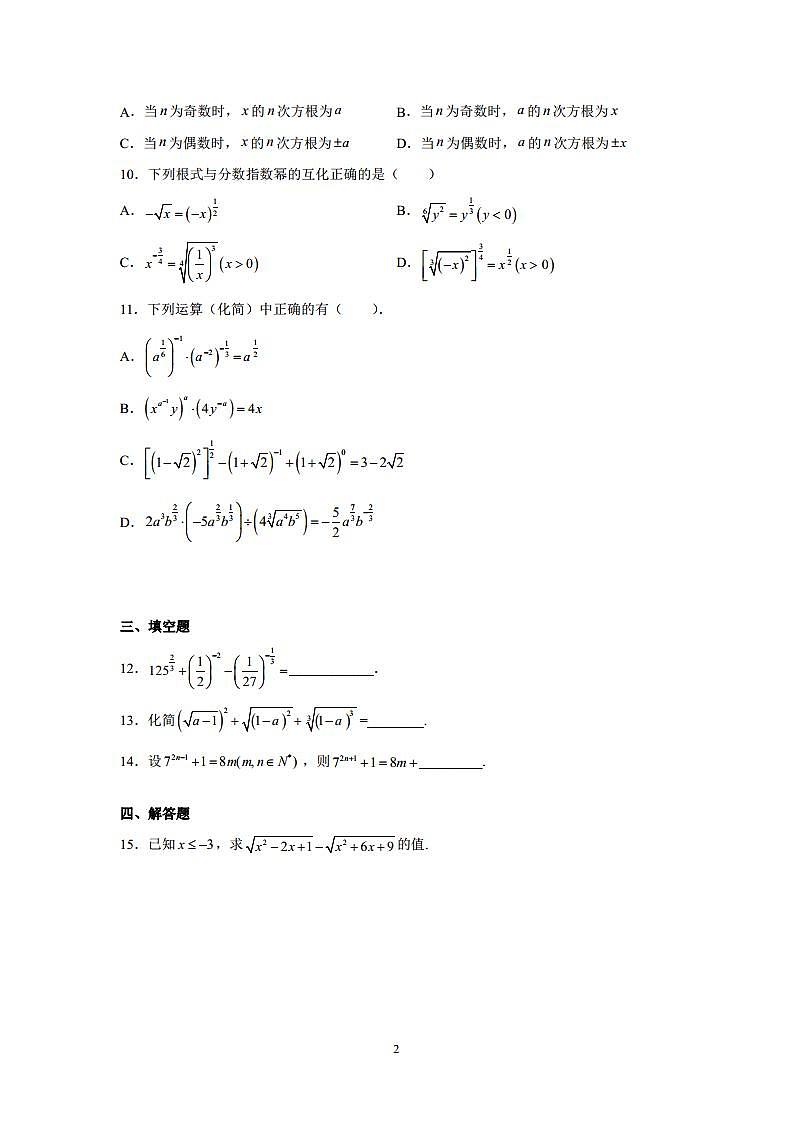 A．当n为奇数时，x的n次方根为a B．当n为奇数时，a的n次方根为x
C．当n为偶数时，x的n次方根为±a D．当n为偶数时，a的n次方根为±x
10．下列根式与分数指数幂的互化正确的是（　　）
A．$-\sqrt{x}=(-x)^{\frac{1}{2}}$ B．$\sqrt[6]{y^2}=y^{\frac{1}{3}}(y<0)$
C．$x^{-\frac{3}{4}}=\sqrt[4]{\left(\frac{1}{x}\right)^3}(x>0)$ D．$\left[\sqrt[3]{(-x)^2}\right]^{\frac{3}{4}}=x^{\frac{1}{2}}(x>0)$
11．下列运算（化简）中正确的有（　　）．
A．$\left(a^{\frac{1}{6}}\right)^{-1}\cdot\left(a^{-2}\right)^{-\frac{1}{3}}=a^{\frac{1}{2}}$
B．$\left(x^{a^{-1}}y\right)^{a}\cdot\left(4y^{-a}\right)=4x$
C．$\left[\left(1-\sqrt{2}\right)^2\right]^{\frac{1}{2}}-\left(1+\sqrt{2}\right)^{-1}+\left(1+\sqrt{2}\right)^0=3-2\sqrt{2}$
D．$2a^3b^{\frac{2}{3}}\cdot\left(-5a^{\frac{2}{3}}b^{\frac{1}{3}}\right)\div\left(4\sqrt[3]{a^4b^5}\right)=-\frac{5}{2}a^{\frac{7}{3}}b^{-\frac{2}{3}}$
三、填空题
12．$125^{\frac{2}{3}}+\left(\frac{1}{2}\right)^{-2}-\left(\frac{1}{27}\right)^{-\frac{1}{3}}=$____________．
13．化简$\left(\sqrt{a-1}\right)^2+\sqrt{(1-a)^2}+\sqrt[3]{(1-a)^3}$=________.
14．设$7^{2n-1}+1=8m(m,n\in N^*)$，则$7^{2n+1}+1=8m+$_________.
四、解答题
15．已知$x\le-3$，求$\sqrt{x^2-2x+1}-\sqrt{x^2+6x+9}$的值.
2